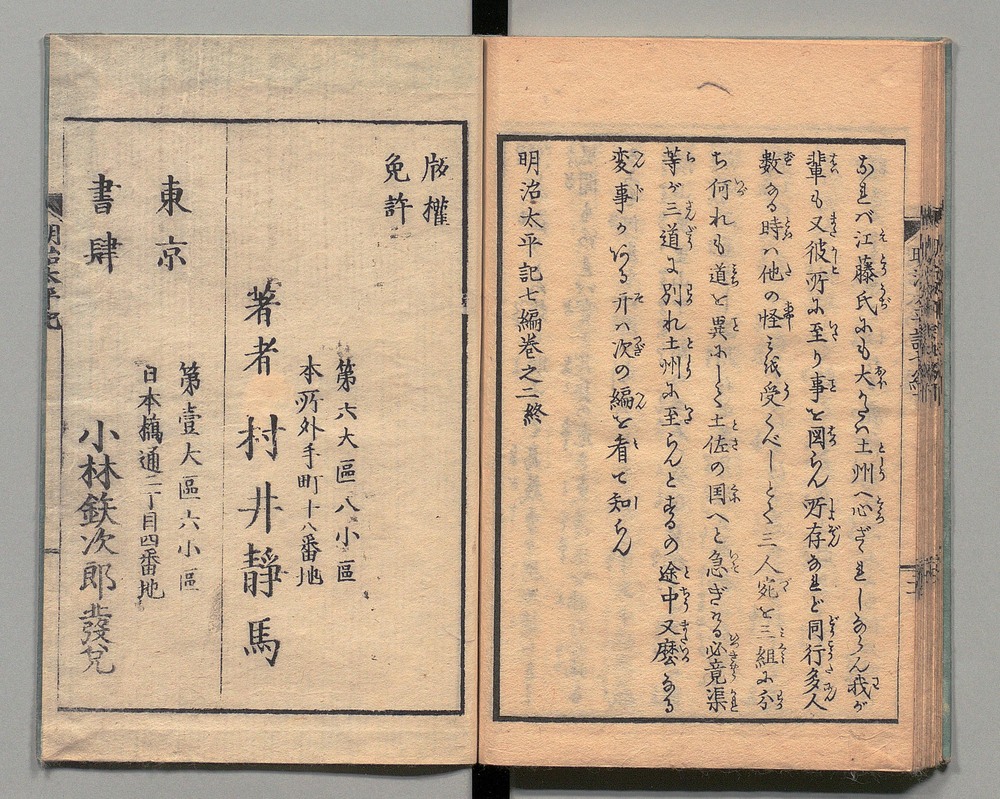 なれバ江藤氏にも大かたハ土州へ心ざされしならん我が
輩も又彼所に至り事を図らん所存なれど同行多人
数なる時ハ他の怪みを受くべしとて三人宛を三組に分
ち何れも道を異にして土佐の国へと急ぎける必竟渠
等が三道に別れ土州に至らんとするの途中又麼なる
変事かある开ハ次の編を看て知らん
明治太平記七編巻之二終
版權
免許
第六大區八小區
本所外手町十八番地
著者 村井靜馬
東京
書肆
第壹大區六小區
日本橋通二丁目四番地
小林鉄次郎發兌
明治太平記